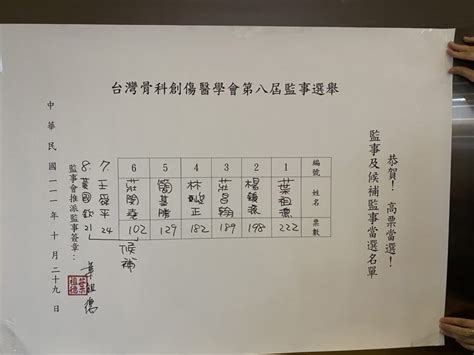 台灣骨科創傷醫學會第八屆監事選舉
恭賀！高票當選！
監事及候補監事當選名單
編號 姓名 票數
1 葉祖德 222
2 楊 198
3 莊昌翰 189
4 林正 182
5 簡基勝 129
6 莊閔堯 102
候補
7. 王 平 24
8. 黃國欽 21
監事會推派監事簽章：
葉祖德
中華民國一一一年十月二十九日